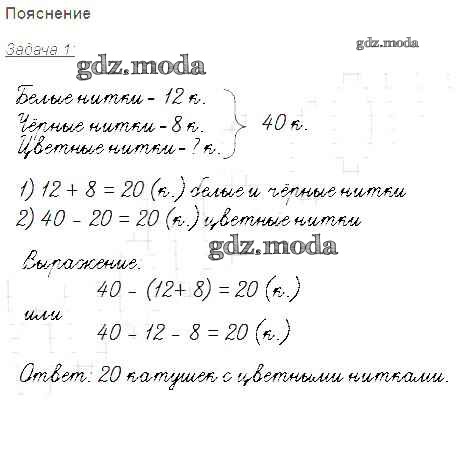 Пояснение
Задача 1:
gdz.moda
gdz.moda
Белые нитки - 12 к.
Чёрные нитки - 8 к.
Цветные нитки - ? к.
40 к.
1) 12 + 8 = 20 (к.) белые и чёрные нитки
2) 40 - 20 = 20 (к.) цветные нитки
gdz.moda
Выражение:
40 - (12+ 8) = 20 (к.)
или
40 - 12 - 8 = 20 (к.)
Ответ: 20 катушек с цветными нитками.